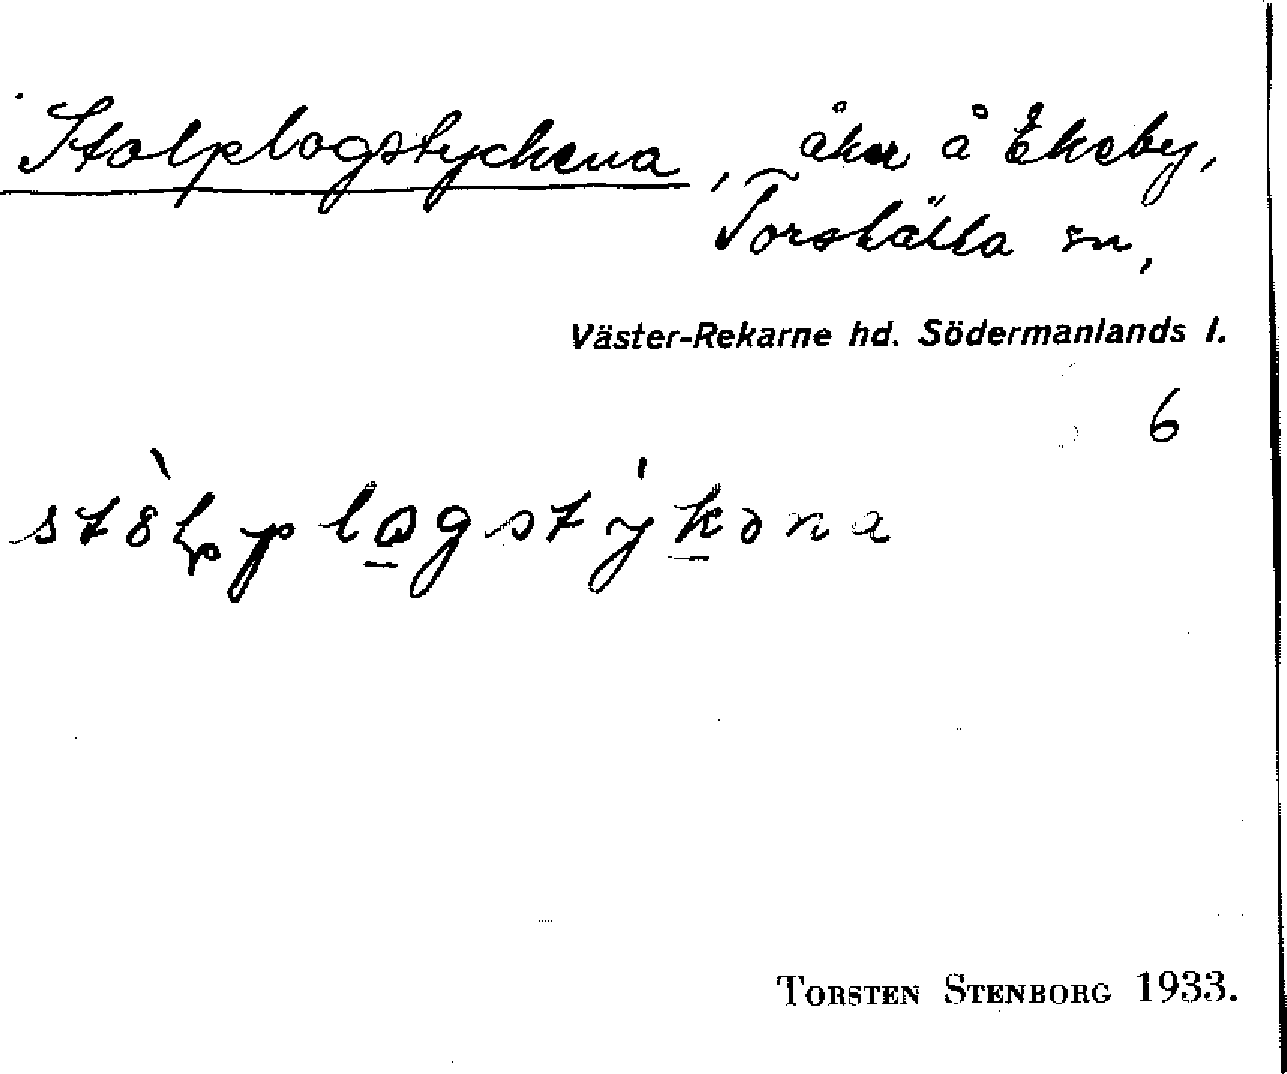 Stolplogstyckena, åker å Ekeby,
Torshälla sn,
Väster-Rekarne hd. Södermanlands l.
6
TORSTEN STENBORG 1933.